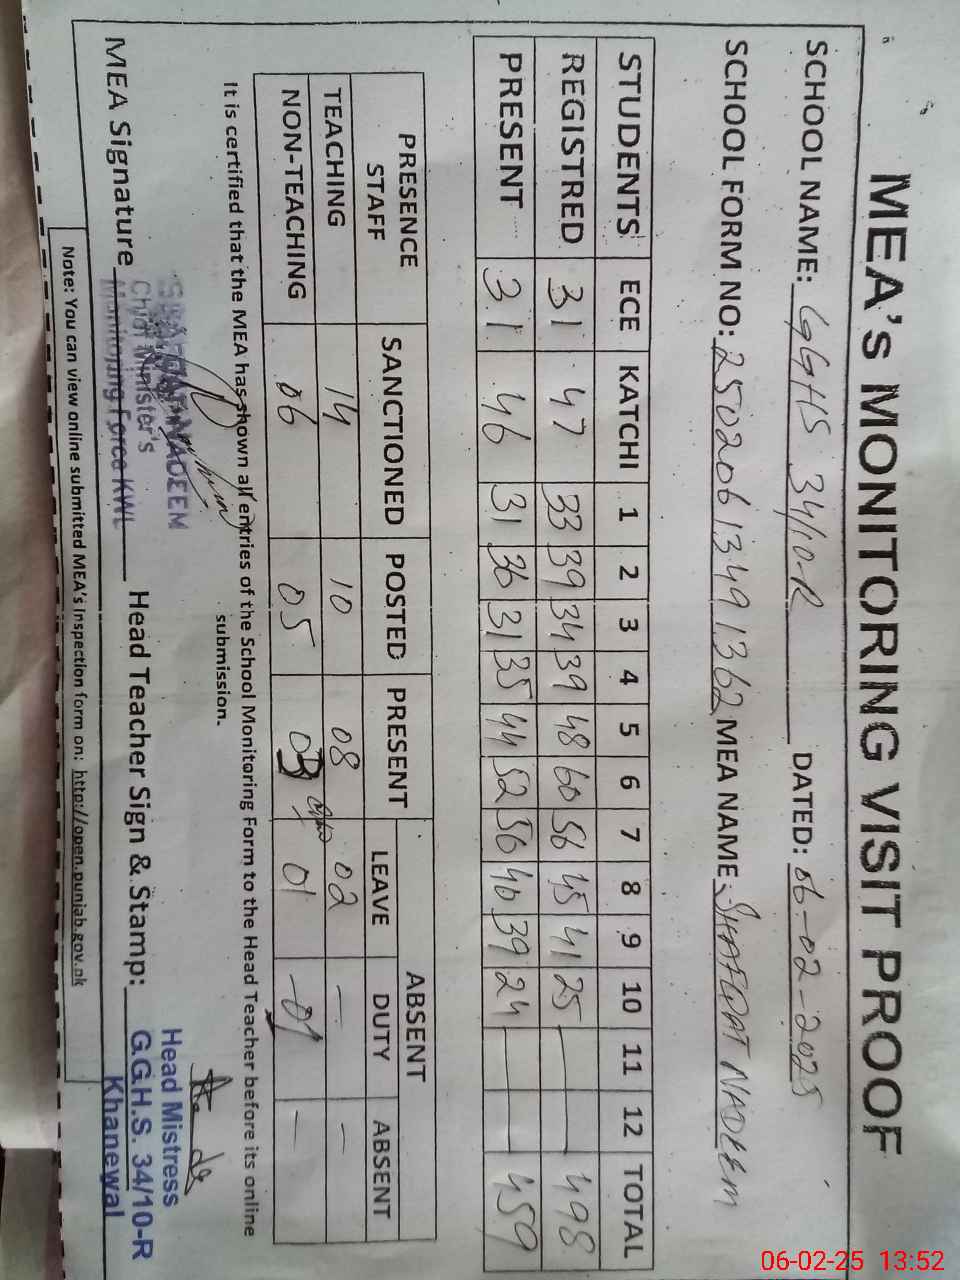 MEA's MONITORING VISIT PROOF
SCHOOL NAME: GGHS 34/10-R DATED: 06-02-2025
SCHOOL FORM NO: 2502061349 1362 MEA NAME: SHAFQAT NADEEM
STUDENTS ECE KATCHI 1 2 3 4 5 6 7 8 9 10 11 12 TOTAL
REGISTRED 31 47 33 39 34 39 48 60 56 45 41 25 — — 498
PRESENT 31 46 31 36 31 35 44 52 50 40 39 24 — — 459
PRESENCE STAFF SANCTIONED POSTED PRESENT ABSENT
LEAVE DUTY ABSENT
TEACHING 14 10 08 02 - -
NON-TEACHING 06 05 01 01 -
It is certified that the MEA has shown all entries of the School Monitoring Form to the Head Teacher before its online
submission.
SHAFQAT NADEEM
Chief Minister's
Monitoring Force KWL
MEA Signature Head Teacher Sign & Stamp:
Head Mistress
G.G.H.S. 34/10-R
Khanewal
Note: You can view online submitted MEA's inspection form on: http://open.punjab.gov.pk
06-02-25 13:52